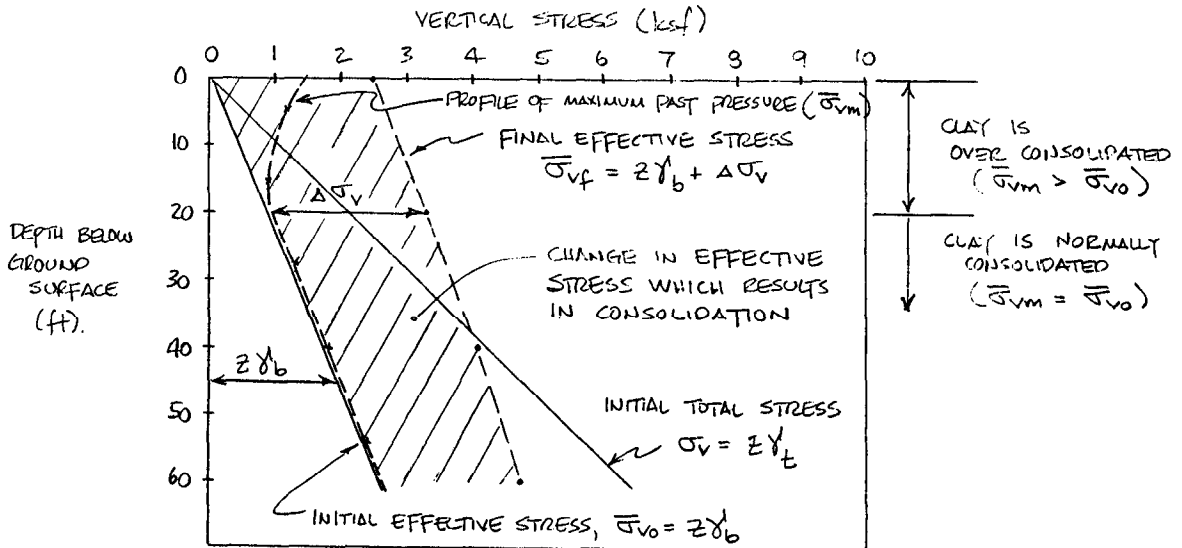 VERTICAL STRESS (ksf)
0 1 2 3 4 5 6 7 8 9 10
0
10
20
30
40
50
60
DEPTH BELOW
GROUND
SURFACE
(ft).
PROFILE OF MAXIMUM PAST PRESSURE (σ̅vm)
FINAL EFFECTIVE STRESS
σ̅vf = zγb + Δσv
Δσv
CHANGE IN EFFECTIVE
STRESS WHICH RESULTS
IN CONSOLIDATION
zγb
INITIAL TOTAL STRESS
σv = zγt
INITIAL EFFECTIVE STRESS, σ̅vo = zγb
CLAY IS
OVER CONSOLIDATED
(σ̅vm > σ̅vo)
CLAY IS NORMALLY
CONSOLIDATED
(σ̅vm = σ̅vo)